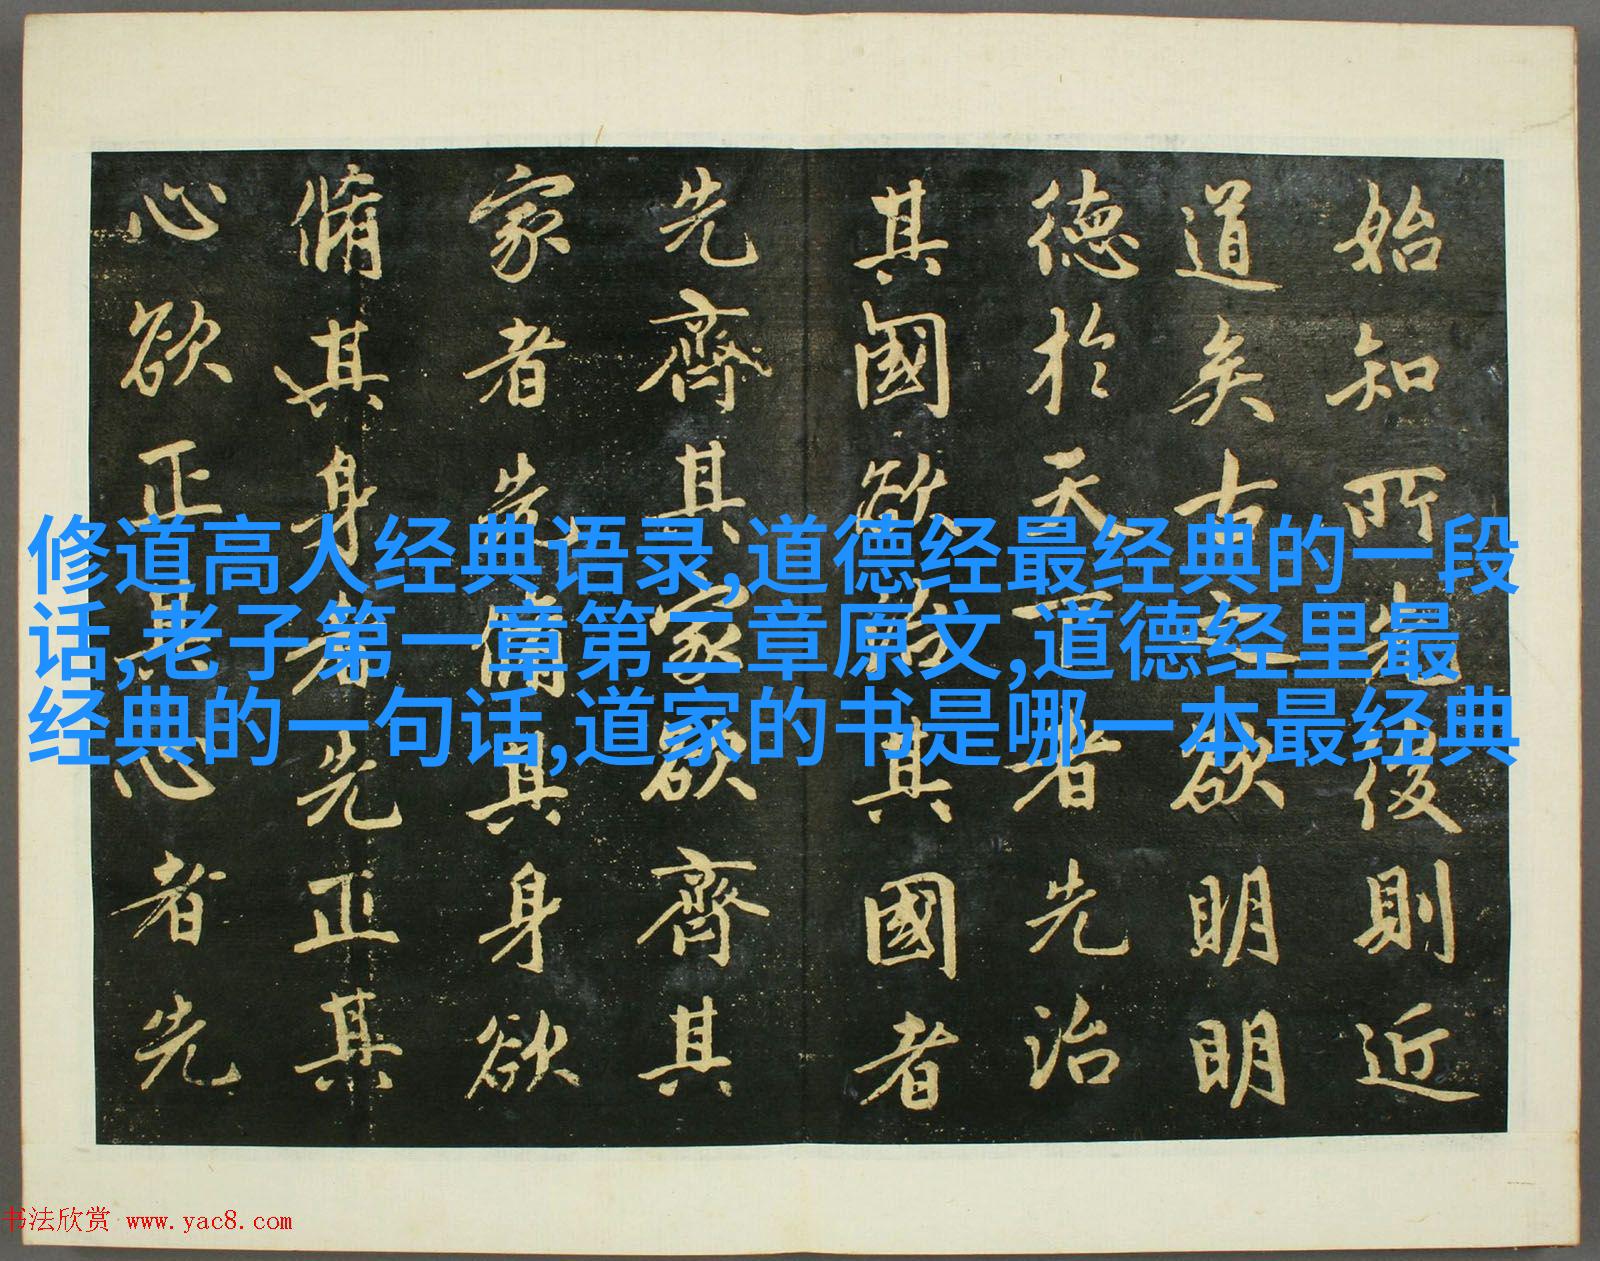 始知所先後則近
道矣古之欲明明
德於天下者先治
其國欲治其國者
先齊其家欲齊其
家者先脩其身欲
脩其身者先正其
心欲正其心者先
修道高人经典语录,道德经最经典的一段
话,老子第一章第二章原文,道德经里最
经典的一句话,道家的书是哪一本最经典
书法欣赏 www.yac8.com